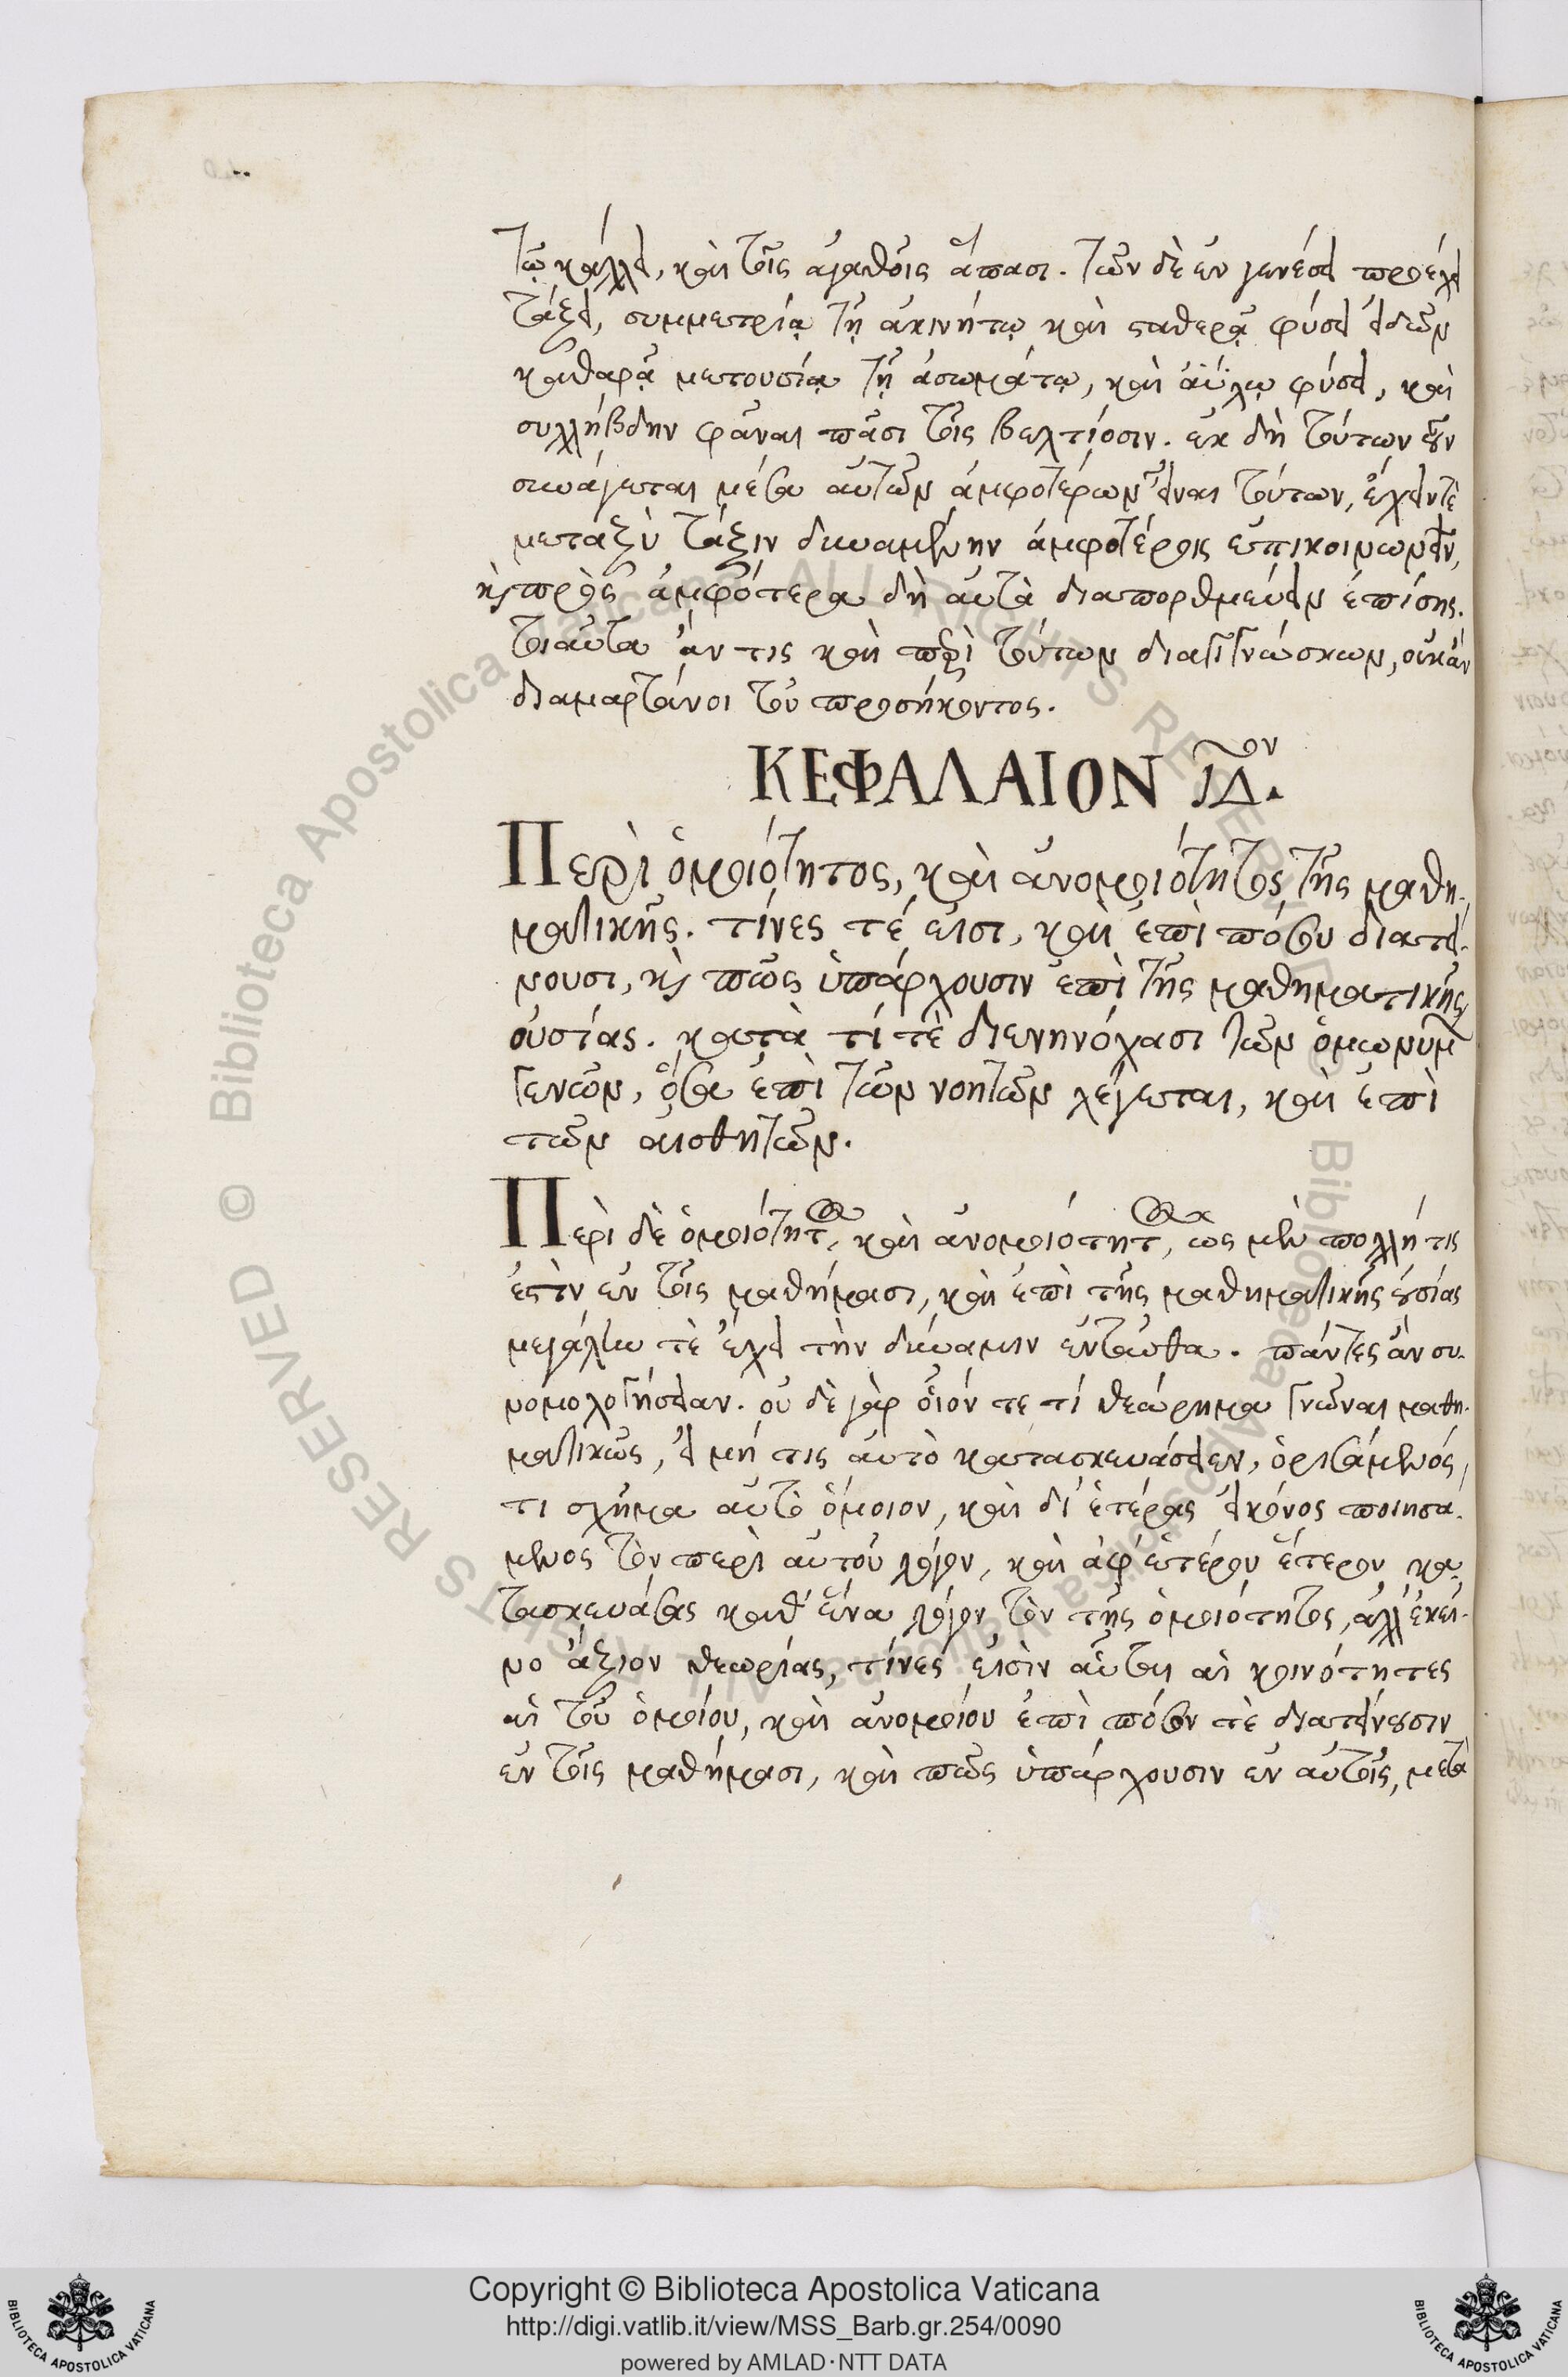 τῷ κάλλει, καὶ τοῖς ἀγαθοῖς ἅπασι. τῶν δὲ ἐν γενέσει προέχει
τάξει, συμμετρίᾳ τῇ ἀκινήτῳ καὶ σταθερᾷ φύσει εἰδῶν
καθαρᾷ μετουσίᾳ τῇ ἀσωμάτῳ, καὶ ἀΰλῳ φύσει, καὶ
συλλήβδην φᾶναι πᾶσι τοῖς βελτίοσιν. ἐκ δὴ τούτων οὖν
συνάγεται μέσα αὐτῶν ἀμφοτέρων εἶναι τούτων, ἔχειν τὲ
μεταξὺ τάξιν δυναμένην ἀμφοτέροις ἐπικοινωνεῖν,
κỳ πρὸς ἀμφότερα δὴ αὐτὰ διαπορθμεύειν ἐπίσης.
τοιαῦτα ἄν τις καὶ περὶ τούτων διαγιγνώσκων, οὐκ ἂν
διαμαρτάνοι τοῦ προσήκοντος.
ΚΕΦΑΛΑΙΟΝ ΙΔον.
Περὶ ὁμοιότητος, καὶ ἀνομοιότητος τῆς μαθη-
ματικῆς. τίνες τέ εἰσι, καὶ ἐπὶ πόσον διατεί-
νουσι, κỳ πῶς ὑπάρχουσιν ἐπὶ τῆς μαθηματικῆς
οὐσίας. κατὰ τί τὲ διενηνόχασι τῶν ὁμωνύμων
γενῶν, ὅσα ἐπὶ τῶν νοητῶν λέγεται, καὶ ἐπὶ
τῶν αἰσθητῶν.
Περὶ δὲ ὁμοιότητος, καὶ ἀνομοιότητος, ὡς μὲν πολλή τις
ἐστὶν ἐν τοῖς μαθήμασι, καὶ ἐπὶ τῆς μαθηματικῆς οὐσίας
μεγάλην τὲ ἔχει τὴν δύναμιν ἐνταῦθα. πάντες ἂν συ-
νομολογήσειαν. οὐ δὲ γὰρ οἷόν τε τί θεώρημα γνῶναι μαθη-
ματικῶς, εἰ μή τις αὐτὸ κατασκευάσειεν, ὁρισάμενός,
τι σχῆμα αὐτὸ ὅμοιον, καὶ δι' ἑτέρας εἰκόνος ποιησά-
μενος τὸν περὶ αὐτοῦ λόγον, καὶ ἀφ' ἑτέρου ἕτερον κα-
τασκευάσας καθ' ἕνα λόγον τὸν τῆς ὁμοιότητος, ἀλλ' ἐκεῖ-
νο ἄξιον θεωρίας, τίνες εἰσὶν αὗται αἱ κοινότητες
αἱ τοῦ ὁμοίου, καὶ ἀνομοίου ἐπὶ πόσον τὲ διατείνουσιν
ἐν τοῖς μαθήμασι, καὶ πῶς ὑπάρχουσιν ἐν αὐτοῖς, μετὰ
Copyright © Biblioteca Apostolica Vaticana
http://digi.vatlib.it/view/MSS_Barb.gr.254/0090
powered by AMLAD·NTT DATA